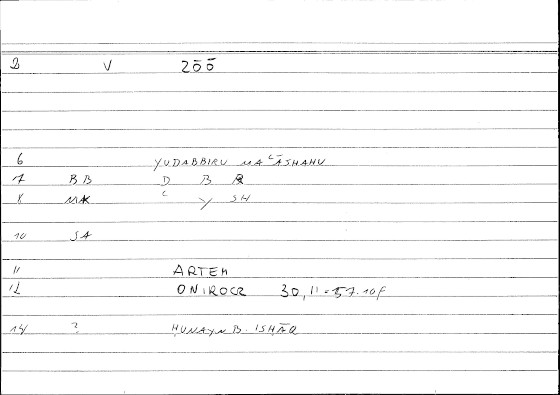 2 V 200
6 YUDABBIRU MAʿĀSHAHU
7 BB D B R
8 MK ʿ Y SH
10 SA
11 ARTEM
12 ONIROCR 30,11 = 57.10f
14 ? ḤUNAYN B. ISḤĀQ